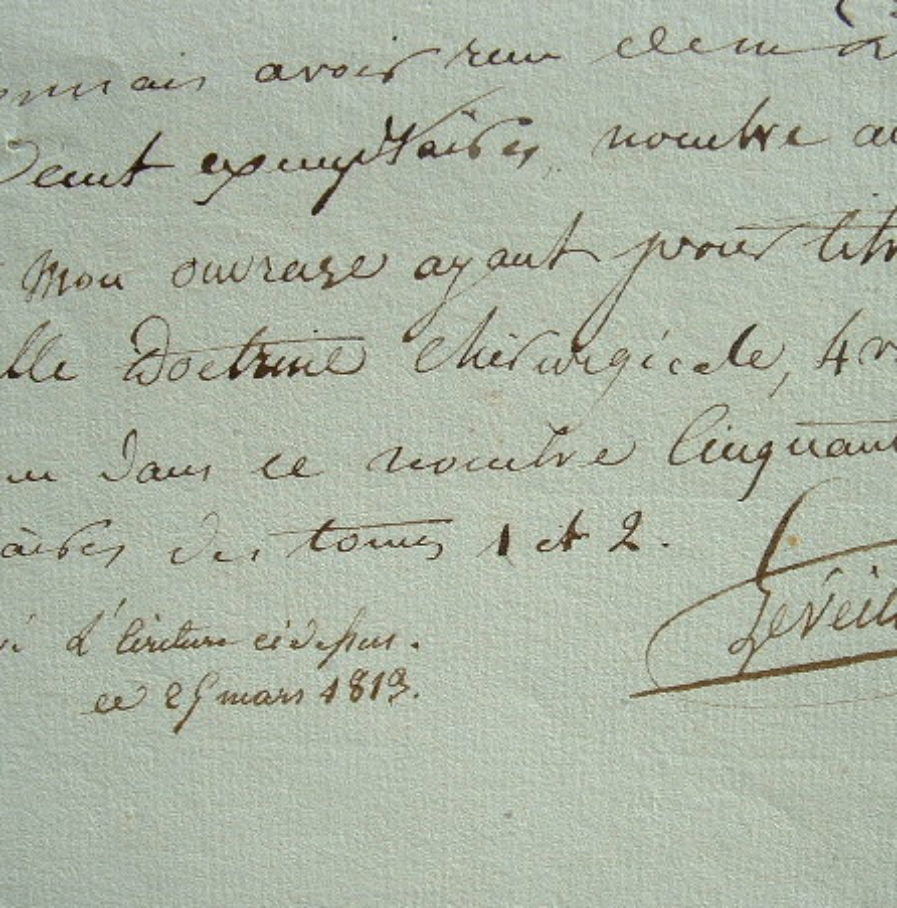 onnais avoir reçu de m
Cent exemplaires, nombre au
mon ouvrage ayant pour titr
lle Doctrine Chirurgicale, 4 v
dans ce nombre Cinquant
aires des tomes 1 et 2.
Léveill
é l'écriture ci dessus.
ce 25 mars 1813.